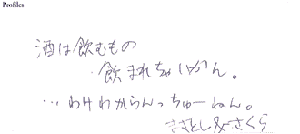 Profiles
酒は飲むもの
・飲まれちゃいかん。
…わけわからんっちゅーねん。
ささとし&さくら